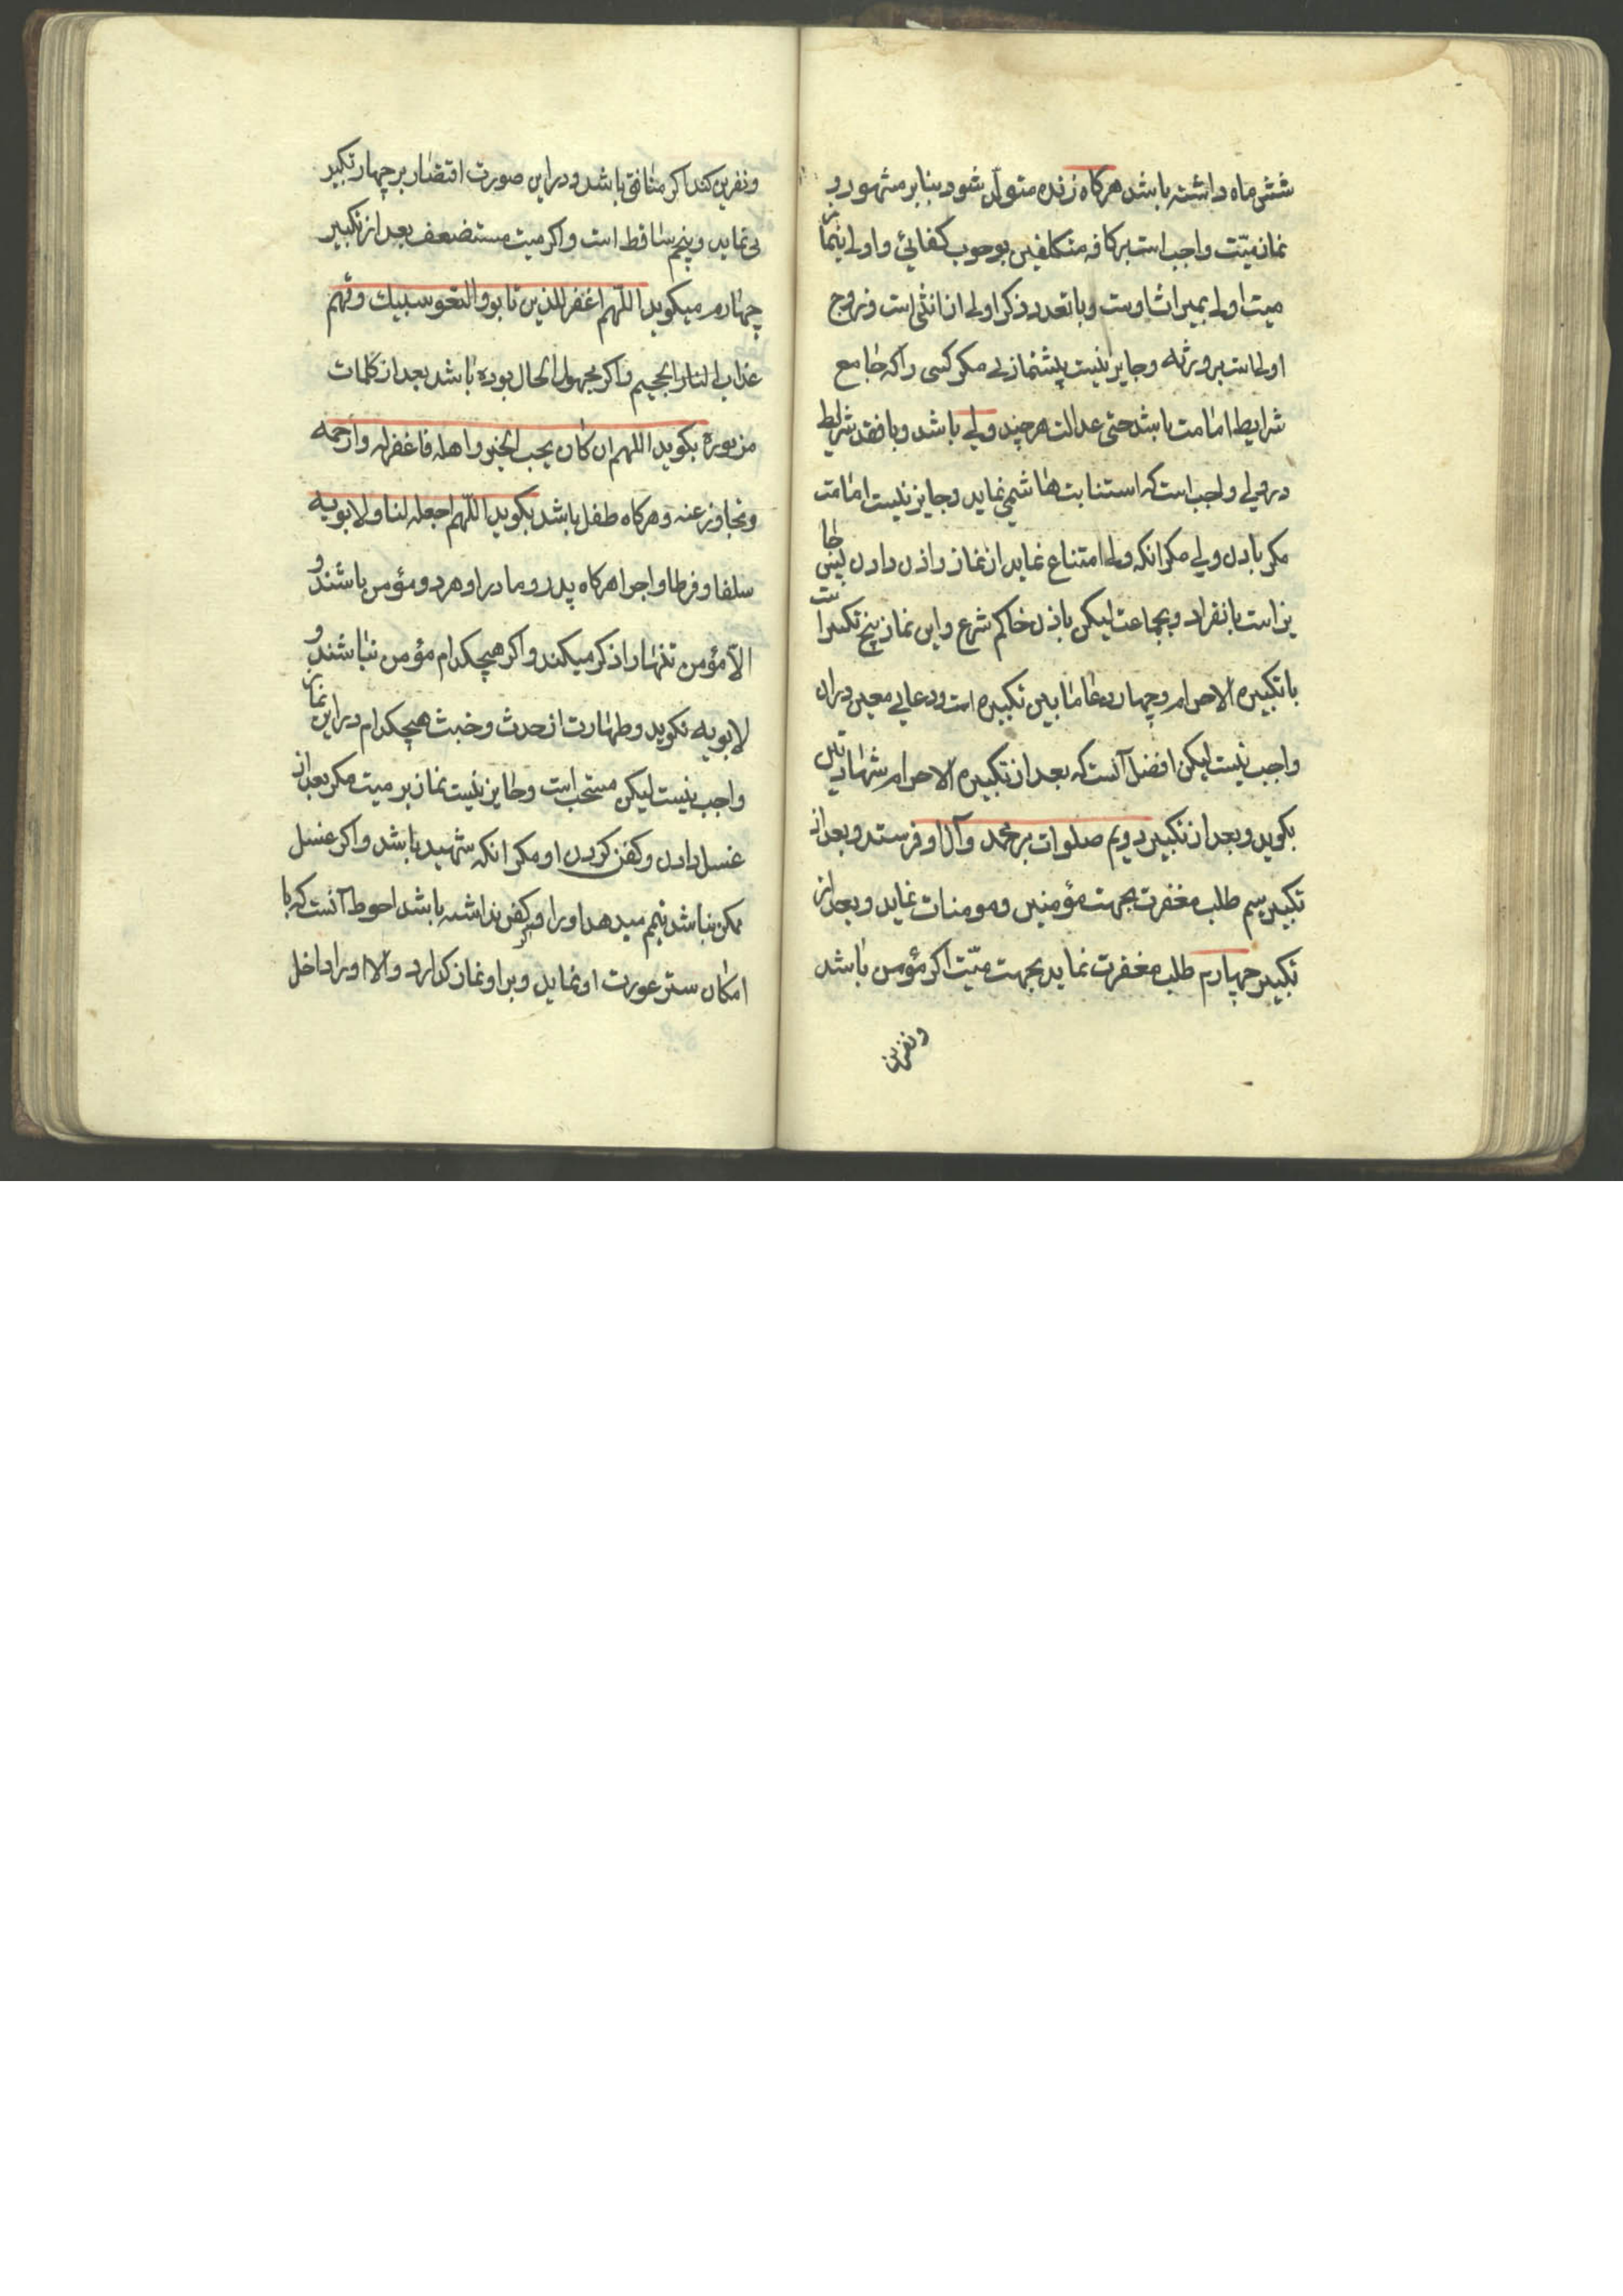 شش ماه داشته باشد هرکاه زنده متولد شود بنابر مشهور و
نماز میّت واجب است بر کافه مکلفین بوجوب کفائی و اولی بنماز
میت اولی بمیراث اوست و با تعدد ذکر اولی از انثی است و زوج
اولی است بر ورثه و جایز نیست پیشنمازی مکر کسی را که جامع
شرایط امامت باشد حتی عدالت هر چند ولی باشد و با فقد شرایط
در ولی واجب است که استنابت هاشمی نماید و جایز نیست امامت
مکر باذن ولی مکر انکه ولی امتناع نماید از نماز و اذن دادن جا
یز است بانفراد و بجماعت لیکن باذن حاکم شرع و این نماز پنج تکبیر است
با تکبیره الاحرام و چهار دعا مابین تکبیره است و دعایی معین دران
واجب نیست لیکن افضل آنست که بعد از تکبیره الاحرام شهادتین
بکوید و بعد از تکبیر دویم صلوات بر محمد و آل او فرستد و بعد از
تکبیر سیم طلب مغفرت بجهت مؤمنین و مومنات نماید و بعد از
تکبیر چهارم طلب مغفرت نماید بجهت میّت اکر مؤمن باشد
و نفرین
و نفرین کند اکر منافق باشد و در این صورت اقتصار بر چهار تکبیر
می نماید و پنجم ساقط است و اکر میت مستضعف بعد از تکبیر
چهارم میکوید اللّهم اغفر للذین تابوا و اتبعوا سبیلك و قهم
عذاب النار الجحیم و اکر مجهول الحال بوده باشد بعد از کلمات
مزبوره بکوید اللهم ان کان یحب الخیر و اهله فاغفر له و ارحمه
و تجاوز عنه و هرکاه طفل باشد بکوید اللّهم اجعله لنا و لابویه
سلفا و فرطا و اجرا هرکاه پدر و مادر او هر دو مؤمن باشند و
الّا مؤمن تنها را ذکر میکند و اکر هیچکدام مؤمن نباشند و
لابویه نکوید و طهارت از حدث و خبث هیچکدام در این نماز
واجب نیست لیکن مستحب است و جایز نیست نماز بر میت مکر بعد از
غسل دادن و کفن کردن او مکر انکه شهید باشد و اکر غسل
ممکن نباشد تیمم میدهد او را و اکر کفن نداشته باشد احوط آنست که با
امکان ستر عورت او نماید و بر او نماز کذارد و الا او را داخل